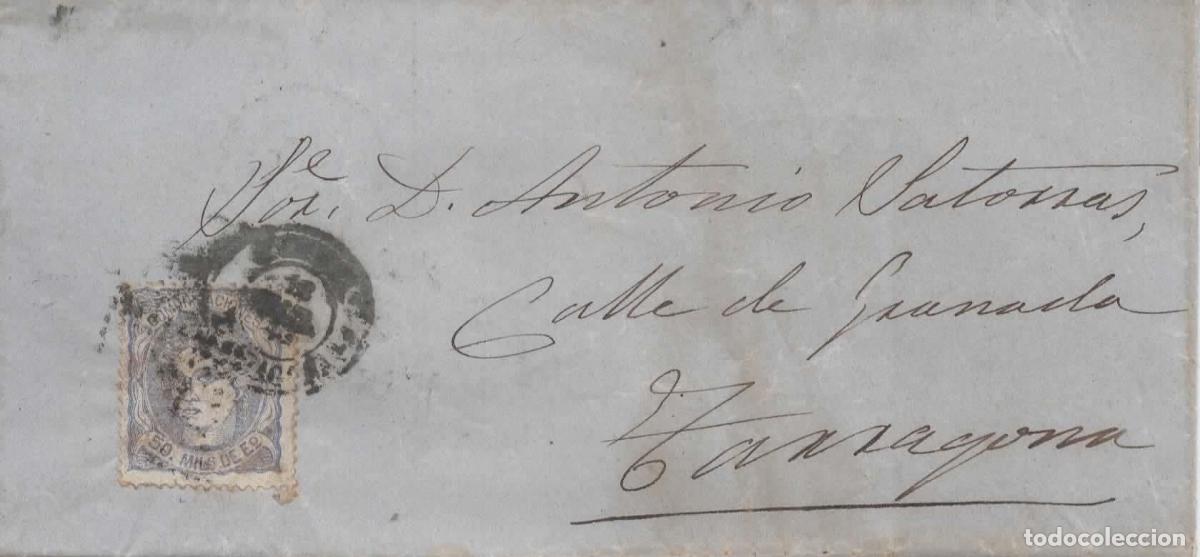 Sor. D. Antonio Satorras,
Calle de Granada
Tarragona
COMUNICACIONES
50 MILS DE Eo
todocoleccion